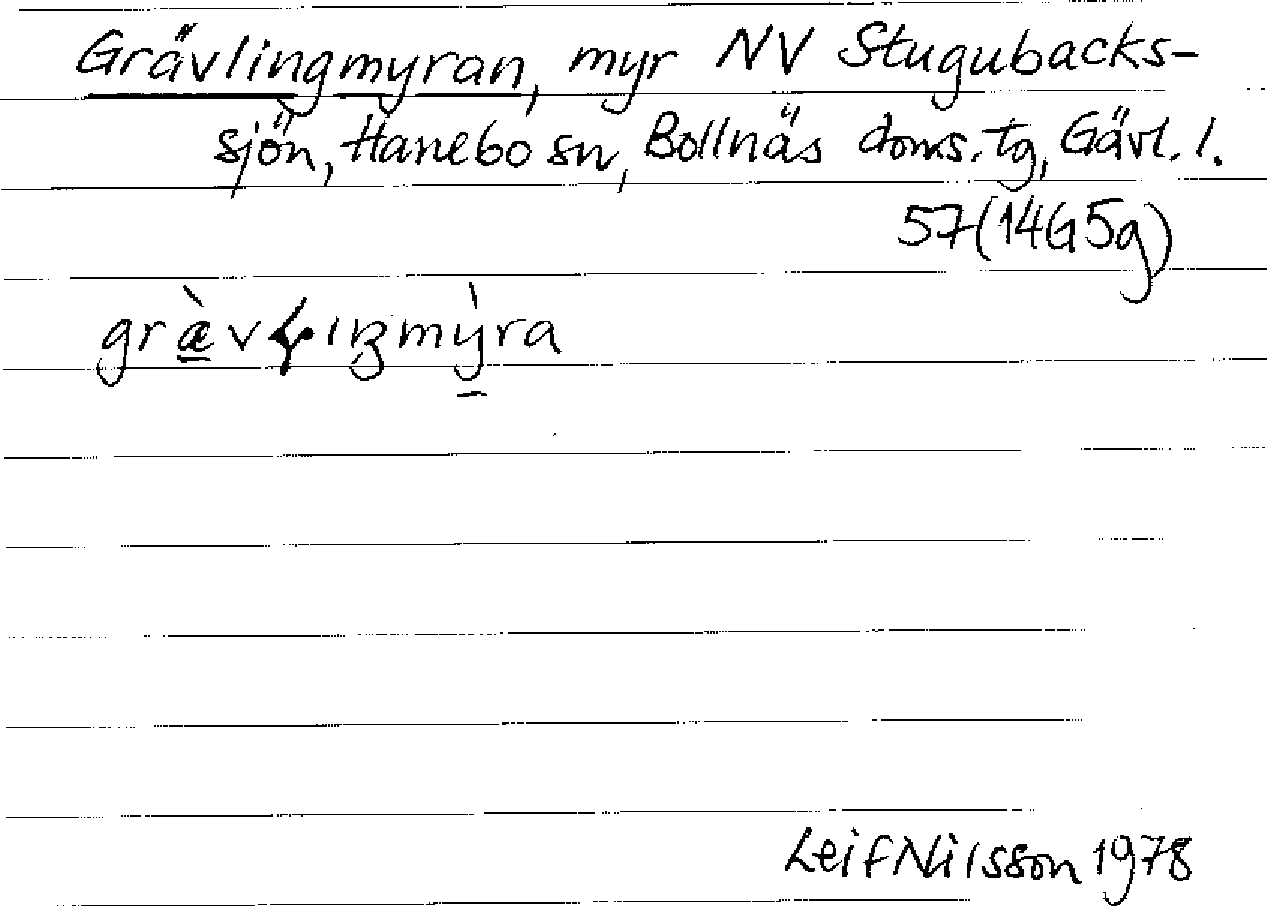 Grävlingmyran, myr NV Stugubacks-
sjön, Hanebo sn, Bollnäs doms. tg, Gävl. l.
57(14G5g)
græ̲̀vɬıŋmỳ̲ra
Leif Nilsson 1978